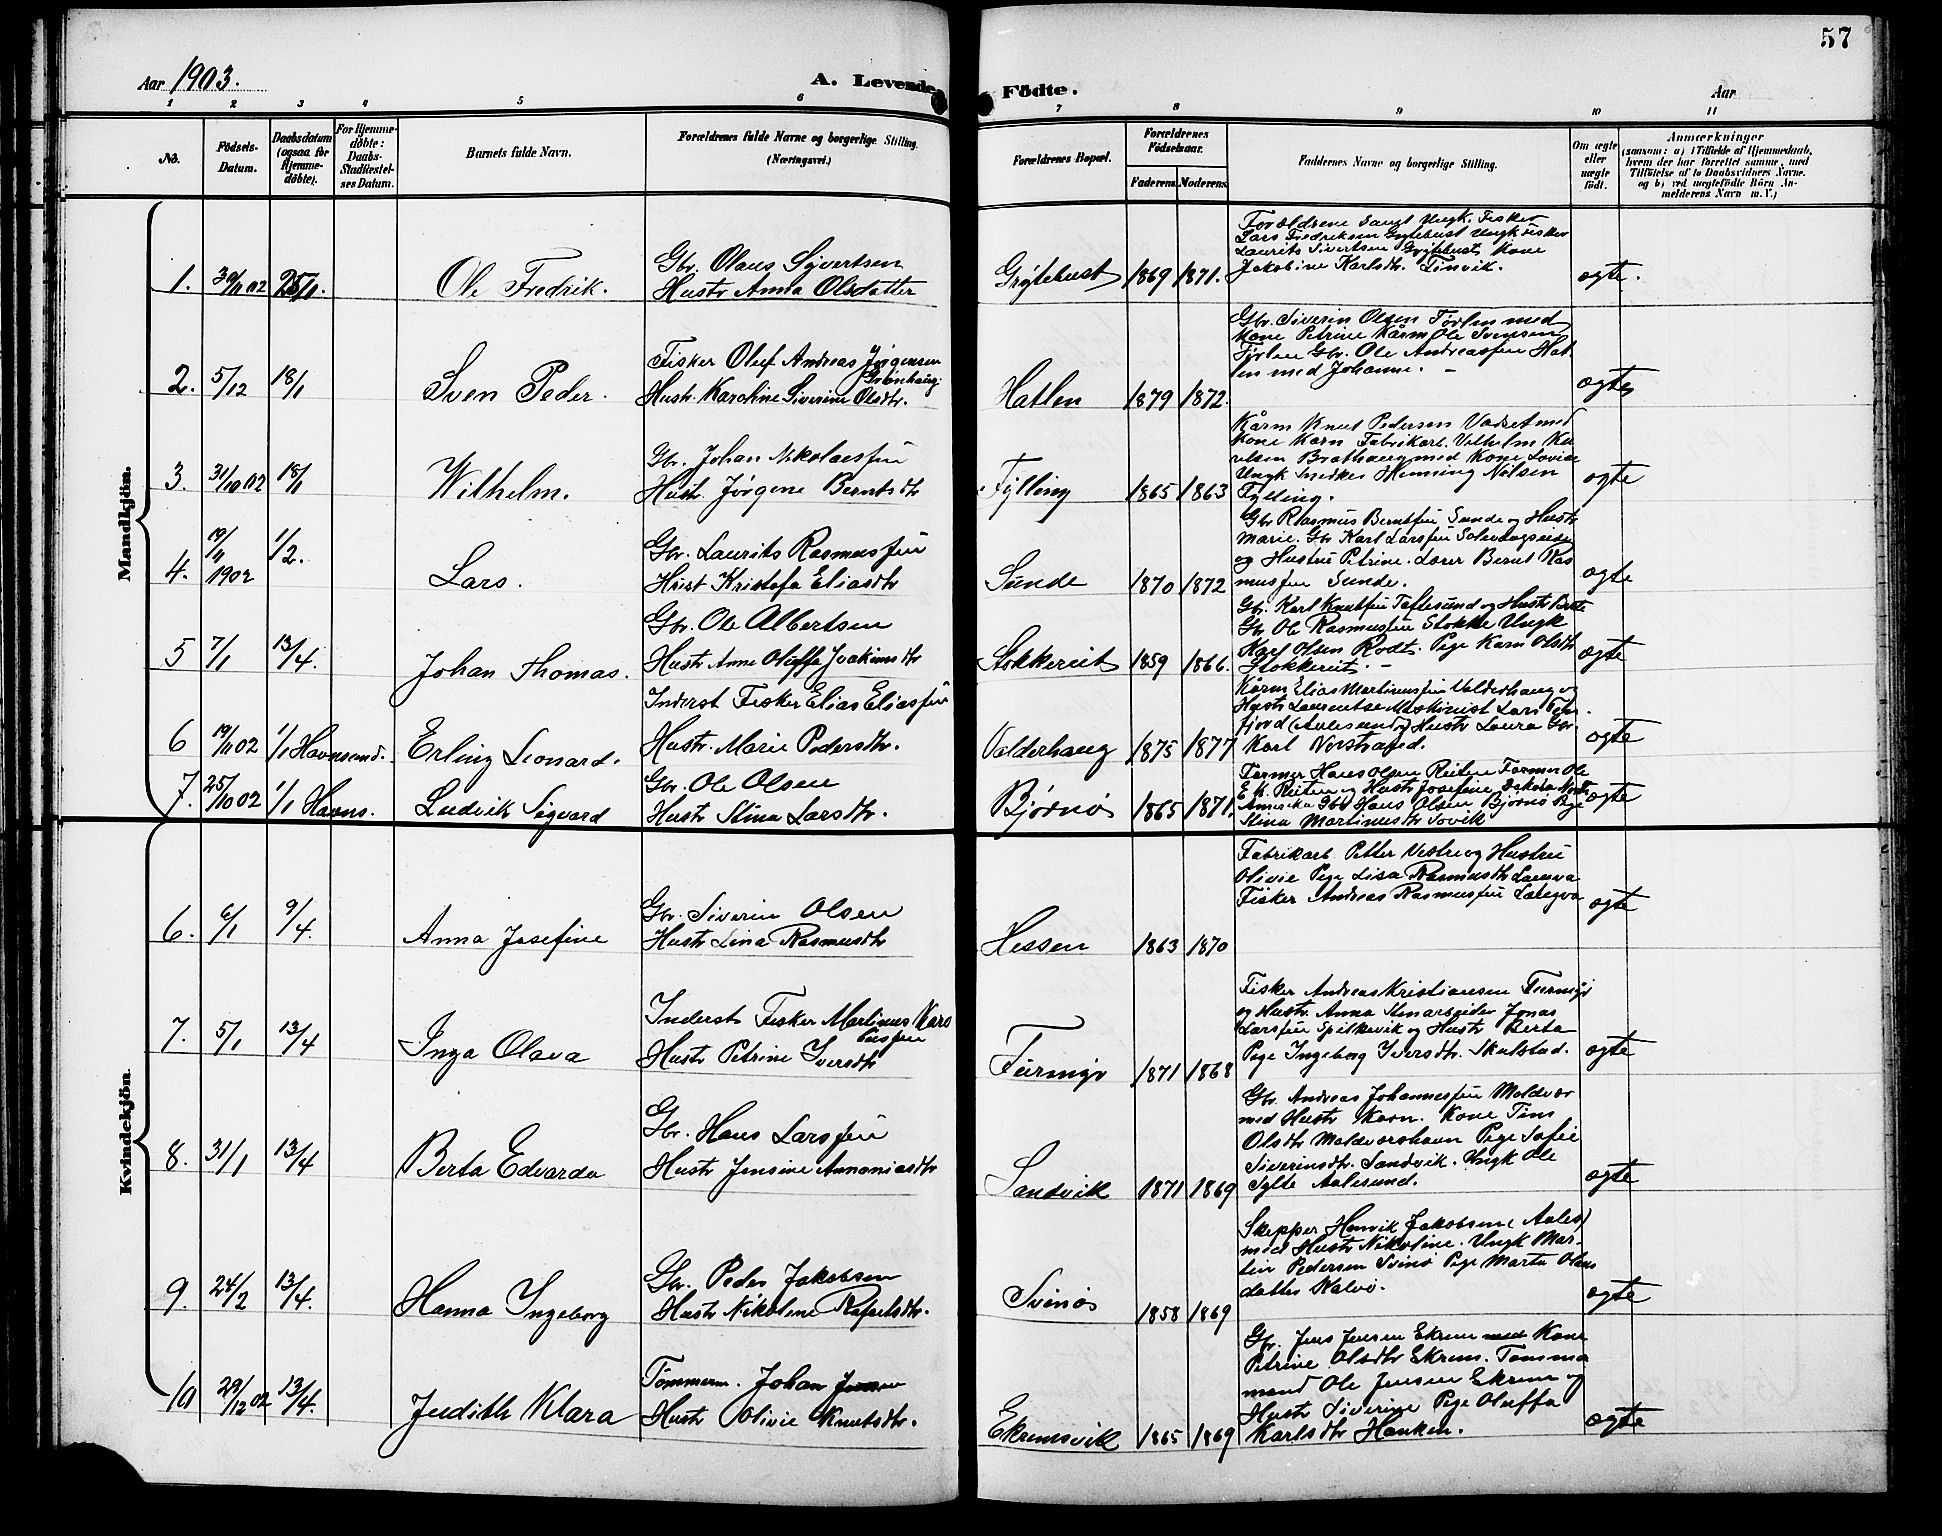 57
Aar 1903. A. Levende Fødte. Aar
1 2 3 4 5 6 7 8 9 10 11
No.
Fødsels-Datum.
Daabsdatum (ogsaa for Hjemme-døbte).
For Hjemme-døbte: Daabs-Stadfæstel-ses Datum.
Barnets fulde Navn.
Forældrenes fulde Navne og borgerlige Stilling.
(Næringsvei.)
Forældrenes Bopæl.
Forældrenes Fødselsaar.
Faderens. Moderens.
Faddernes Navne og borgerlige Stilling.
Om ægte eller uægte født.
Anmærkninger
(saasom: a) i Tilfælde af Hjemmedaab,
hvem der har forrettet samme, med
Tilføielse af to Daabsvidners Navne.
og b) ved uægtefødte Børn An-
melderens Navn m. V.)
Mandkjøn.
1. 30/11 02 25/1. Ole Fredrik.
Gbr. Olaus Sivertsen
Hustr Anna Olsdatter
Grytehust 1869 1871.
Forældrene samt Ungk. Fisker
Lars Fredriksen Grytehust Ungk Fisker
Laurits Sivertsen Grytehust, Kone
Jakobine Karlsdtr. Finvik.
ægte.
2. 5/12 18/1 Sven Peder.
Fisker Oluf Andreas Jørgensen
Grønhaug
Hustr. Karoline Siverine Olsdtr.
Hatlen 1879 1872.
Gbr. Siverin Olsen Fjørlen med
Kone Petrine Kårm Ole Svensen
Fjørlen Gbr. Ole Andreassen Hat-
len med Johanne.
ægte
3. 31/10 02 18/1 Wilhelm.
Gbr. Johan Nikolaissen
Hustr. Jørgene Berntsdtr
Fylling 1865 1863
Kårm Knut Pedersen Vadset med
Kone Karn Fabrikarb. Vilhelm
Brathaug med Kone Lovise
Ungk Snedker Henning Nilsen
Fylling.
ægte
4. 19/11 1902 1/2. Lars.
Gbr. Laurits Rasmussen
Hustr Kristofa Eliasdtr
Sunde 1870 1872
Gbr Rasmus Berntsen Sunde og Hustr
Marie. Gbr Karl Larssen
og Hustru Petrine. Lærer Bernt Ras
mussen Sunde.
ægte
5 7/1 13/4. Johan Thomas.
Gbr. Ole Albertsen
Hustr Anne Oluffa Joakimsdtr
Stokkereit 1859 1866.
Gbr. Karl Knutsen Teftesund og Hustr Berte
Gbr Ole Rasmussen Stokke Ungk
Karl Olsen Rødt. Pige Karn Olsdtr
Stokkereit.
ægte
6 19/11 02 1/1 Havnsund. Erling Leonard.
Inderst Fisker Elias Eliassen
Hustr. Marie Pedersdtr.
Valderhaug 1875 1877
Kårm Elias Martinussen Valderhaug og
Hustr Laurentse Maskinist Lars
fjord (Aalesund) Hustr Laura Gbr.
Karl Nerstrand.
ægte
7. 25/10 02 1/1 Havns. Ludvik Sigvard
Gbr. Ole Olsen
Hustr Stina Larsdtr.
Bjørnø 1865 1871.
Farmer Hans Olsen Reiten Farmer Ole
E. K. Reiten og Hustr Josefine Dakota Nord
Amerika Gbr Hans Olsen Bjørnø Pige
Stina Martinusdtr Søvik
ægte
Kvindekjøn.
6. 6/1 9/4. Anna Josefine
Gbr. Siverin Olsen
Hustr Lina Rasmusdtr
Hessen 1863 1870
Fabrikarb. Petter Vestre og Hustru
Olivie Pige Lisa Rasmusdtr
Fisker Andreas Rasmussen
ægte
7. 5/1 13/4 Inga Olava
Inderst Fisker Martinus Kars
tensen
Hustr Petrine Iversdtr
Furmyr 1871 1868
Fisker Andreas Kristiansen Furmyr
og Hustr. Anna Stenarbeider Jonas
Larssen Spilkevik og Hustr Berta
Pige Ingeborg Iversdtr. Skulstad.
ægte
8. 31/1 13/4 Berta Edvarda
Gbr. Hans Larssen
Hustr Jensine Annaniasdtr
Sandvik 1871 1869
Gbr. Andreas Johannessen Moldvær
med Hustr Karn. Kone Tina
Olsdtr Moldværshavn Pige Sofie
Siverinsdtr. Sandvik. Ungk Ole
Sylte Aalesund.
ægte
9. 24/2 13/4. Hanna Ingeborg
Gbr. Peder Jakobsen
Hustr Nikoline Rafaelsdtr.
Svinø 1858 1869
Skipper Henrik Jakobsen (Aales)
med Hustr Nikoline. Ungk Mar-
tin Pedersen Svinø Pige Marta Olaus
datter Kalvø.
ægte
10 29/12 02 13/4. Judith Klara
Tømmerm. Johan Jensen
Hustr Olivie Knutsdtr.
Ekremsvik 1865 1869
Gbr. Jens Jensen Ekrem med Kone
Petrine Olsdtr Ekrem. Tømmer
mand Ole Jensen Ekrem og
Hustr Siverine Pige Oluffa
Karlsdtr Hanken.
ægte